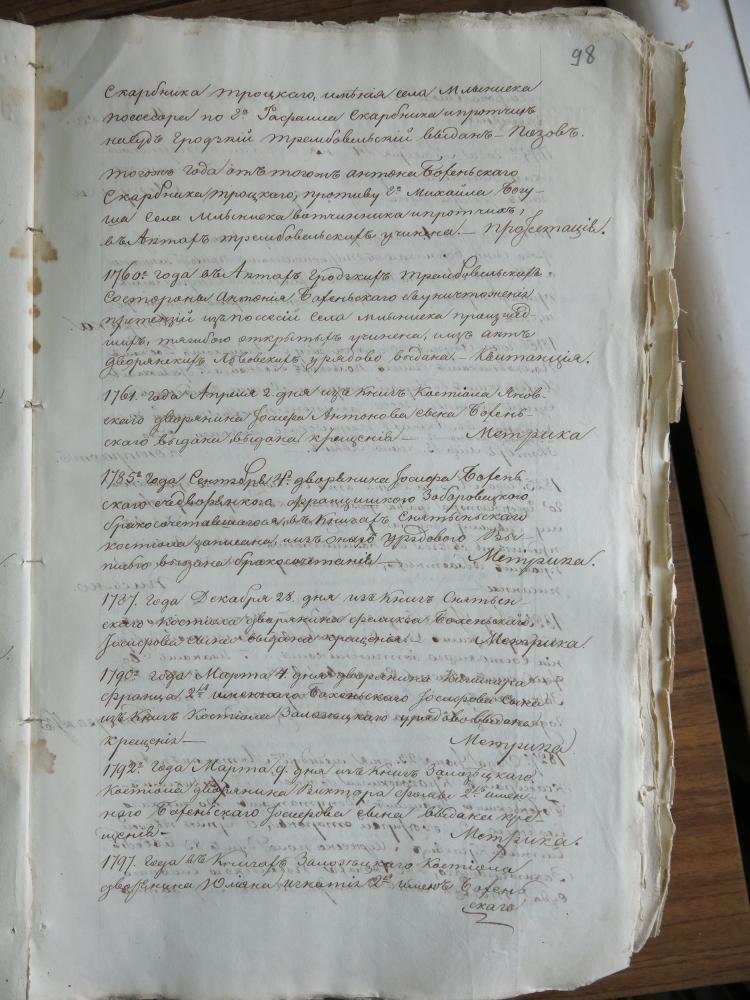 98
Скарбника троцкаго, имѣнія села Млыниска
поссесора по Г<sup>о</sup> Рафаила Скарбника и протчихъ
на судъ Гродзкій Трембовельскій выданъ — Позовъ.
тогожъ года отъ тогожъ Антона Боженьскаго
Скарбника троцкаго, противу Г<sup>о</sup> Михайла Богу-
ша села Млыниска вотчинника и протчихъ,
въ Актахъ Трембовельскихъ учинена. — Протестація.
1760<sup>о</sup> года въ Актахъ Гродзкихъ Трембовельскихъ,
состороны Антонія Боженьскаго объ уничтоженіи
притензій изъ посессіи села Млыниска произшед-
шихъ, тяжбою открытыхъ учинена, изъ актъ
дворянскихъ Львовскихъ урядово водана. — Квитанція.
1761. года Апреля 2. дня изъ Книгъ Костіола Янов-
скаго дворянина Іосифа Антонова сына Божень-
скаго выдана крещенія — Метрика
1785<sup>о</sup> года Сентября 4<sup>о</sup> дворянина Іосифа Божень-
скаго съ дворянкою Францишкою Заборовицкою
бракосочетавшагося, въ Книгахъ Снятыньскаго
костіола записана, изъ онаго урядового
выдана бракосочетанія — Метрика.
1787. года Декабря 28. дня изъ Книгъ Снятын-
скаго Костіола дворянина Феликса Боженьскаго
Іосифова сына выдана крещенія — Метрика.
1790<sup>о</sup> года Марта 4. дня дворянина
Франца 2<sup>хъ</sup> именнаго Боженьскаго Іосифова сына
изъ Книгъ Костіола Залозецкаго урядово выдана
крещенія — Метрика
1792<sup>о</sup> года Марта 9. дня изъ Книгъ Залозецкаго
Костіола дворянина Виктора 2<sup>хъ</sup> имен-
наго Боженьскаго Іосифова сына выдана кре-
щенія — Метрика.
1797. года въ Книгахъ Залозецкаго Костіола
дворянина Юліяна Игнатія 2<sup>хъ</sup> именъ Божень
скаго